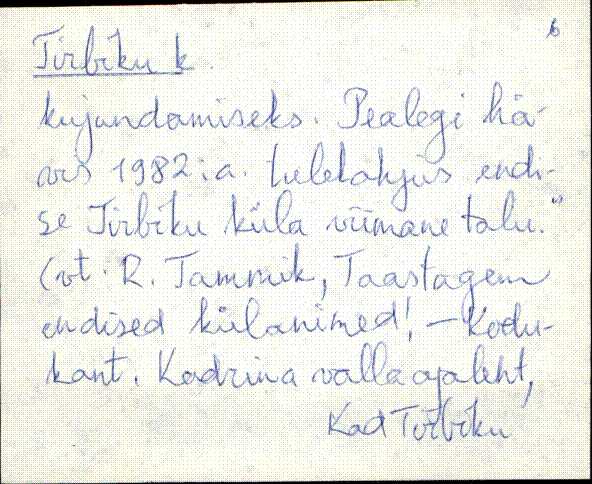 6
Tirbiku k.
kujundamiseks. Pealegi hä-
vis 1982. a. tulekahjus endi-
se Tirbiku küla viimane talu."
(vt. R. Tammik, Taastagem
endised külanimed! – Kodu-
kant. Kadrina valla ajaleht,
Kad Tirbiku